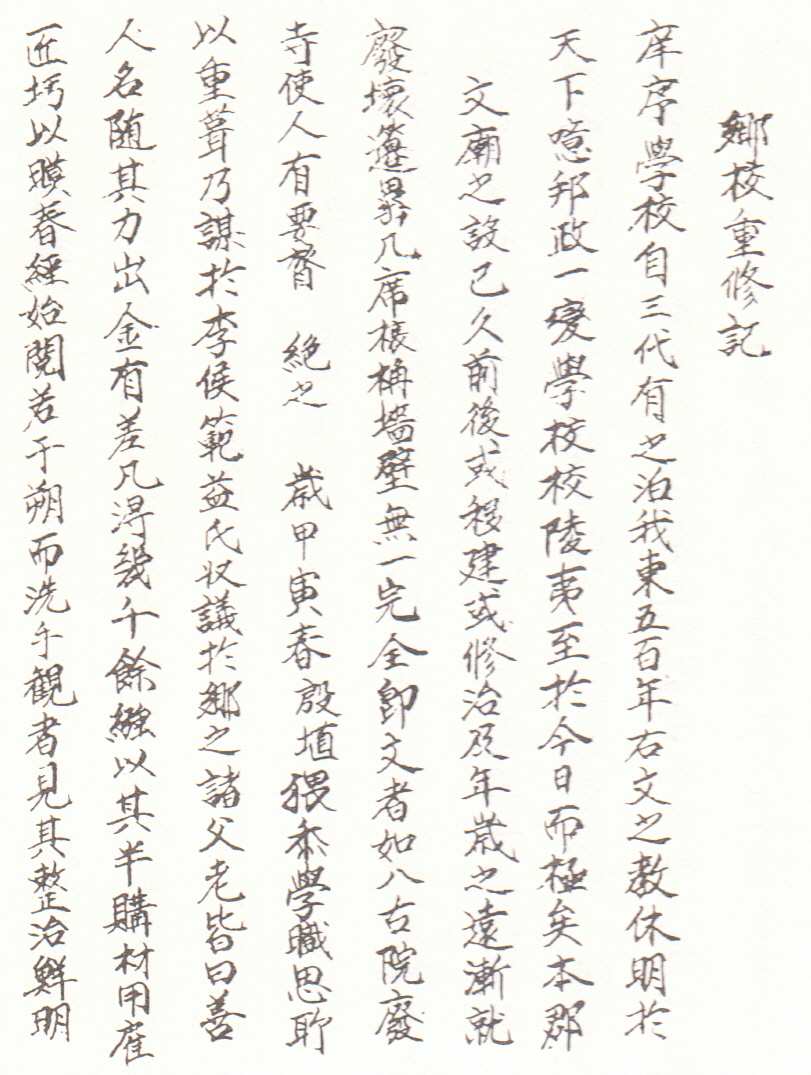 鄕校重修記
庠序學校自三代有之洎我東五百年右文之敎休明於
天下噫邦政一變學校校陵夷至於今日而極矣本郡
文廟之設已久前後或移建或修治及年歲之遠漸就
廢壞籩罍几席榱桷墻壁無一完全卽文者如入古院廢
寺使人有要督 絶之 歲甲寅春設埴猥忝學職思所
以重葺乃謀於李侯範益氏収議於鄕之諸父老皆曰善
人名随其力出金有差凡淂幾千餘繦以其半購材用雇
匠圬以暵春經始閱若干朔而洗手観者見其整治鮮明